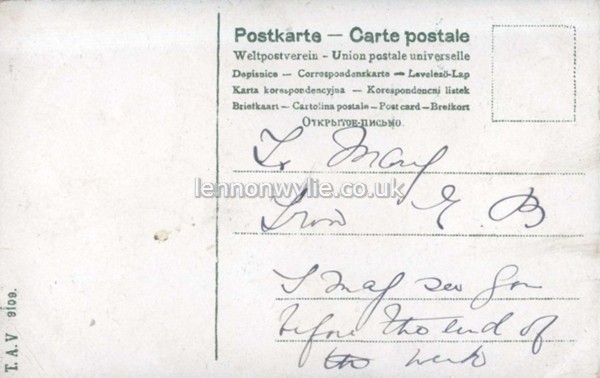 Postkarte — Carte postale
Weltpostverein - Union postale universelle
Dopisnice — Correspondenzkarte — Levelező-Lap
Karta korespondencyjna — Korespondencni listek
Briefkaart — Cartolina postale — Post card — Brefkort
Открытое-письмо.
To Mary
lennonwylie.co.uk
From E. B
I may see you
before the end of
the week
T. A. V 9109.